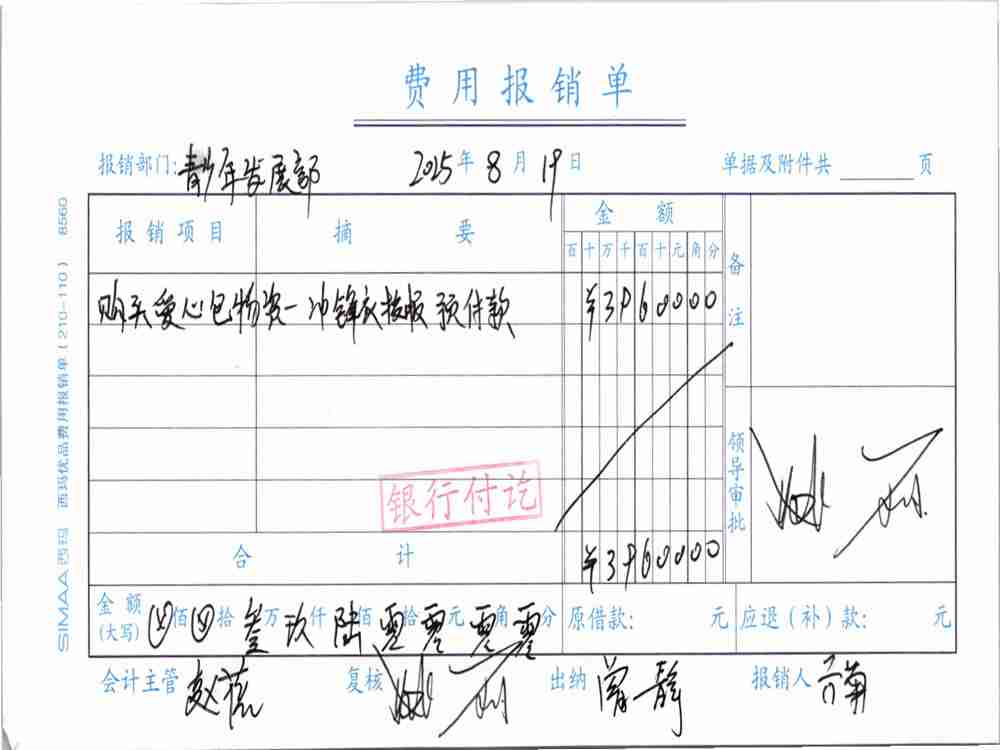 费用报销单
报销部门: 青少年发展部 2025年8月19日 单据及附件共 页
报销项目 摘要 金额 备注
百十万千百十元角分
购买爱心包物资-冲锋衣校服 预付款 ¥3960000
领导审批
银行付讫
合计 ¥3960000
金额(大写) 佰 拾 叁万 玖仟 陆佰 零拾 零元 零角 零分 原借款: 元 应退(补)款: 元
会计主管 赵蕊 复核 出纳 曾静 报销人
SIMAA 西玛 西玛优品费用报销单(210-110) 8560